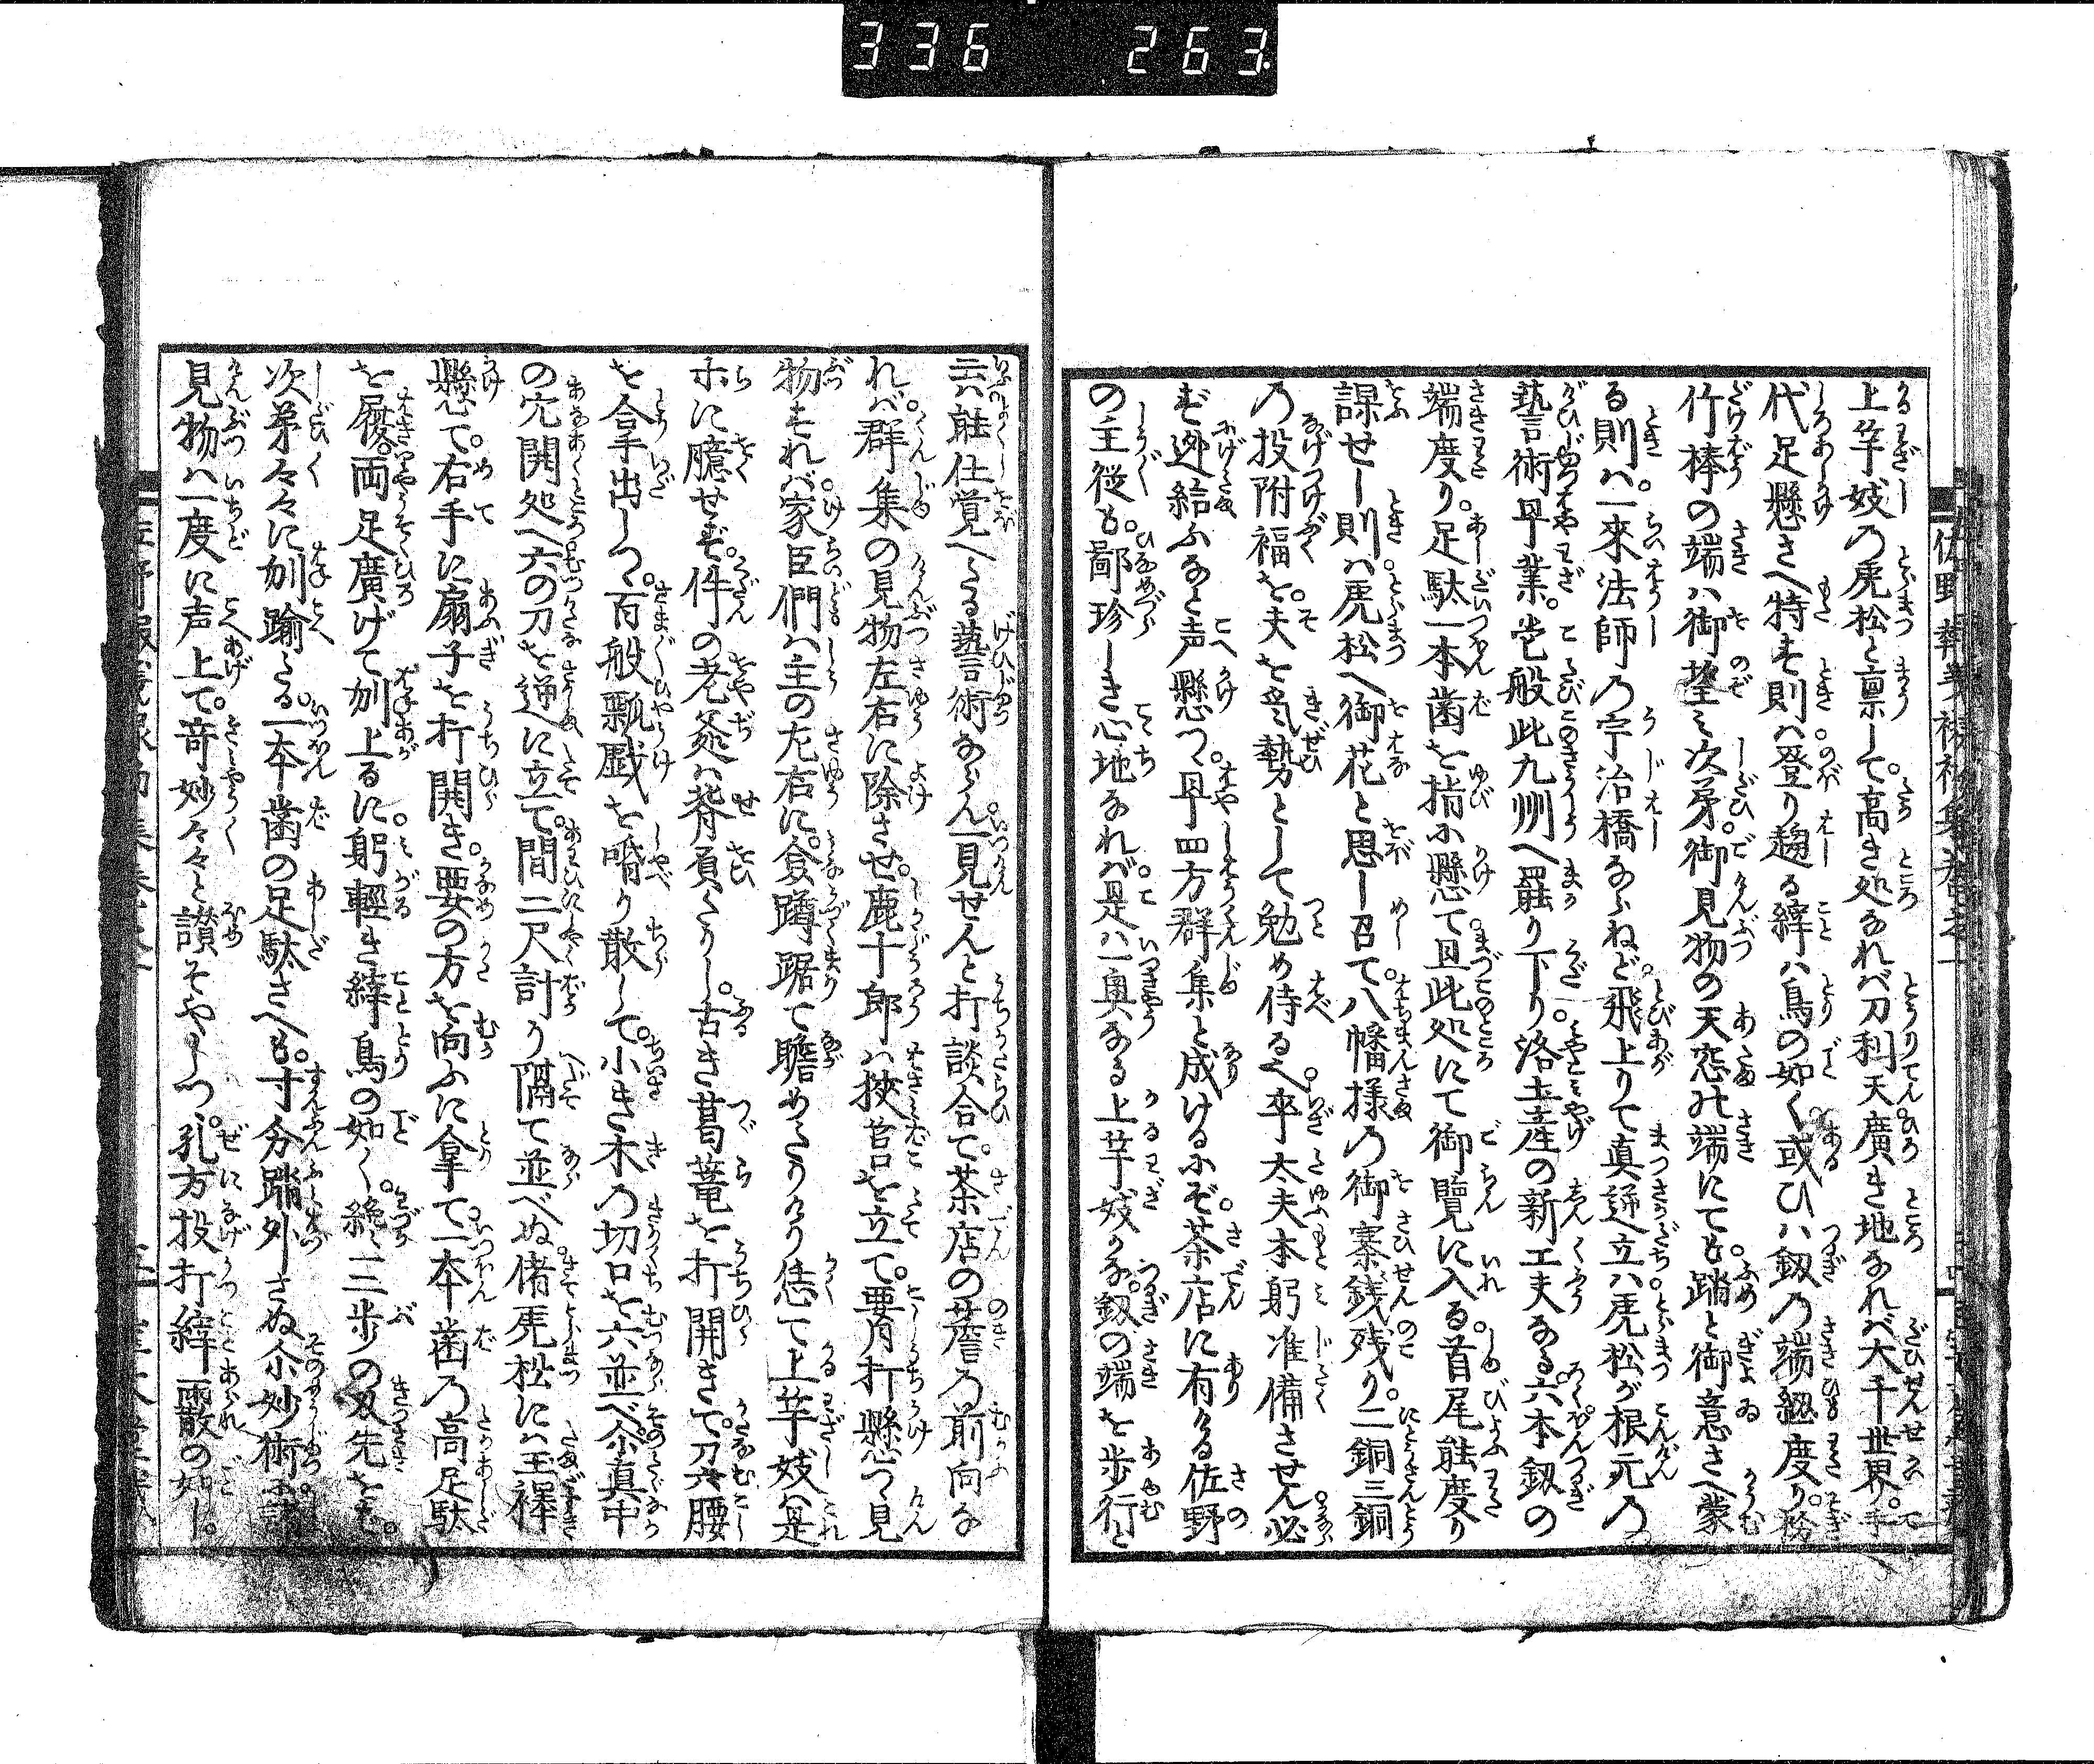 336 263
上竿妓の虎松と稟して。高き処なれバ刀利天廣き地なれバ大千世界。手
代足懸さへ特ず則ハ登り趨る縡ハ鳥の如く或ひハ釼の端紐度り
竹棒の端ハ御望ミ次第。御見物の天窓の端にても。踏と御意さへ蒙
る則ハ。一来法師の宇治橋ならねど。飛上りて真逆立ハ虎松が根元の
藝術早業。這般此九州へ罷り下り。洛土産の新工夫なる。六本釼の
端度り。足駄一本歯を指に懸て。且此処にて御覧に入る。首尾能度り
課せし則ハ。虎松へ御花と思し召て。八幡様の御賽銭残り。二銅三銅
の投附福を。夫を気勢として勉め侍るへ。卒太夫本躬准備させん。必
ず迯給ふなと声懸つ。早四方群集と成けるにぞ。茶店に有ける佐野
の主従も。鄙珍しき心地なれバ。是ハ一奥なる上竿妓かな。釼の端を歩行と
云ハ能仕覚へたる藝術ならん。一見せんと打談合て。茶店の簷の前向な
れバ。群集の見物左右に除させ。鹿十郎ハ挾莒を立て。要肖打懸つ見
物すれバ。家臣們ハ主の左右に。衆蹲踞て瞻めたりけり恁て上竿妓ハ是
ホに臆せず。件の老爺ハ背負たりし。古き葛篭を打開きて。刀六腰
を拿出しつ。百般瓢戯を喋り散して。小き木の切口を六並べ。尓真中
の穴開処へ六の刀を逆に立て。間二尺計り隔て並べぬ偖虎松にハ玉襷
懸て。右手に扇子を打開き。要の方を向ふに拿て。一本歯の高足駄
を履。両足廣げて刎上るに。躬軽き縡鳥の如く。纔三歩の刄先をも。
次第々々に刎踰たる。一本歯の足駄さへも。寸分踏外さぬ。尓妙術に
見物ハ一度に声上て。奇妙々々と讃そやしつ。孔方投打縡霰の如し。